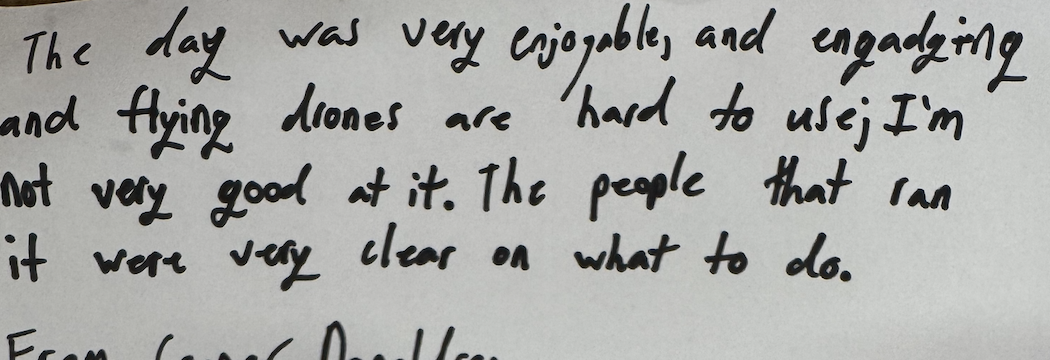 The day was very enjoyable, and engadging
and flying drones are hard to use; I'm
not very good at it. The people that ran
it were very clear on what to do.
From